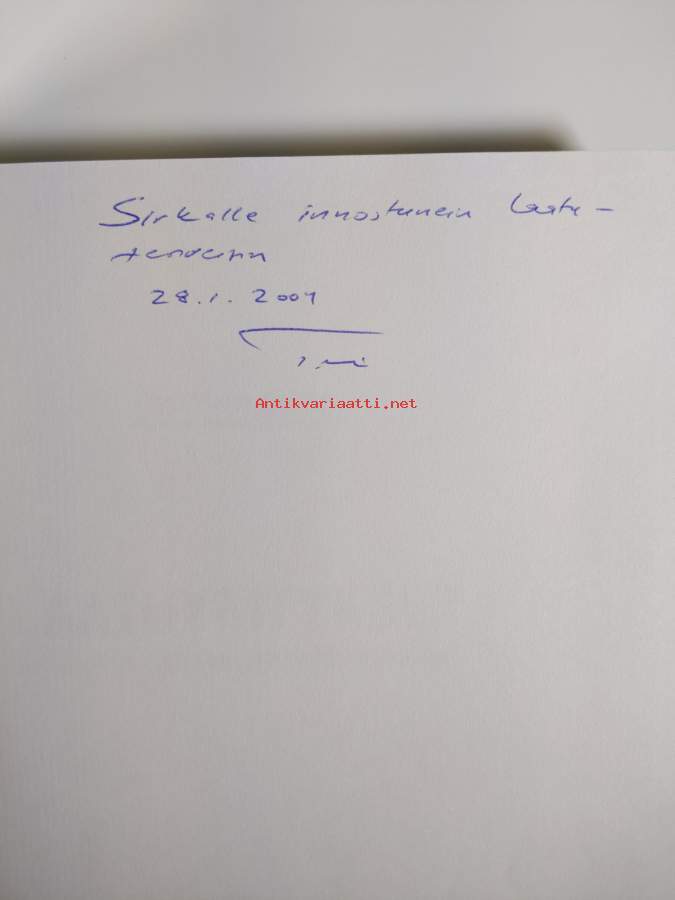 Sirkalle innostunein laatu-
terveisin
28.1.2004
Antikvariaatti.net